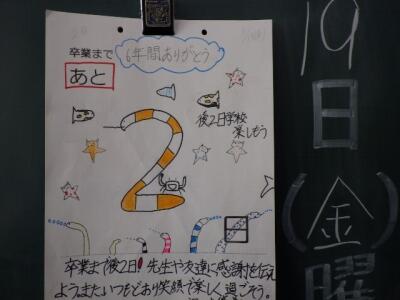 6年間ありがとう
卒業まで
あと
2
日
後2日学校
楽しもう
卒業まで後2日!先生や友達に感謝を伝え
よう。またいつもどおり笑顔で楽しく過ごそう。
19
日
(金)
曜